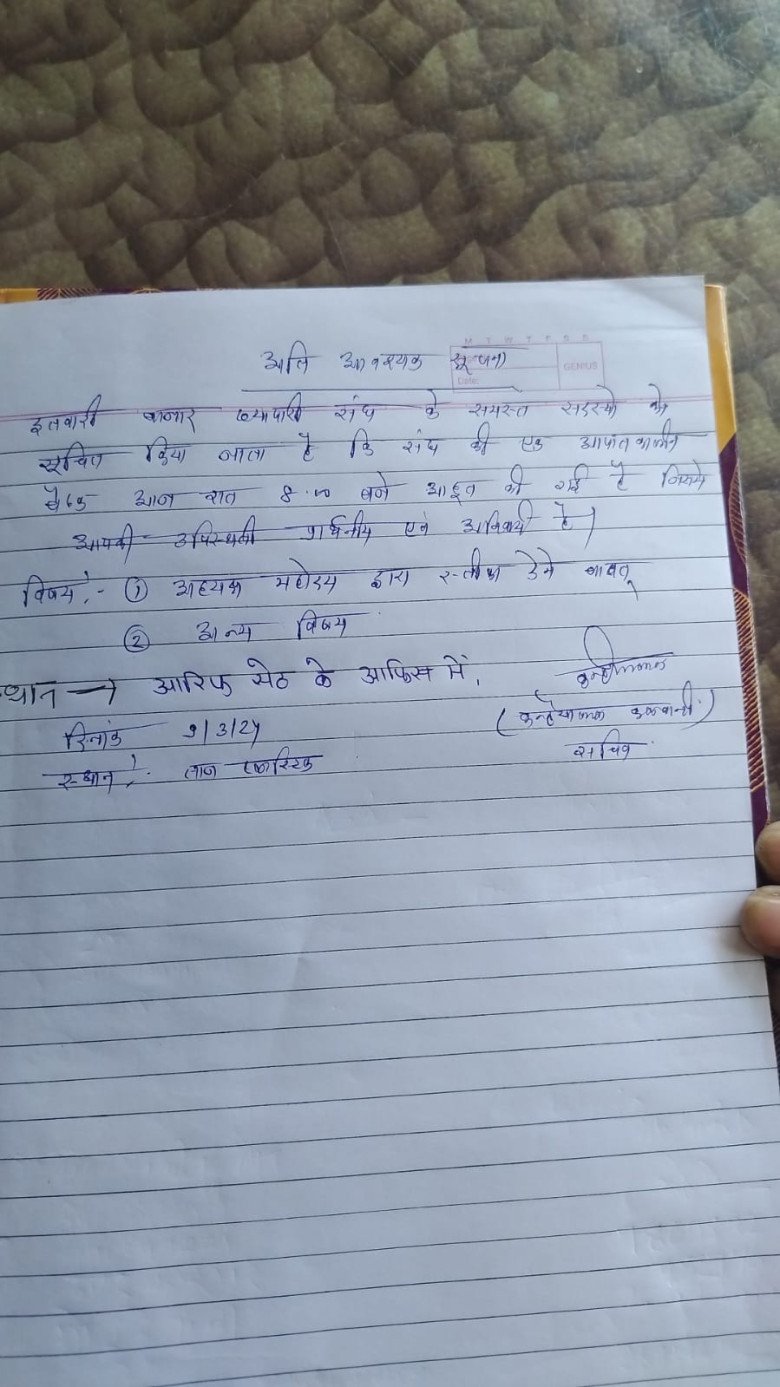 M T W T F S S
GENIUS
Date:
अति आवश्यक सूचना
इतवारी बाजार व्यापारी संघ के समस्त सदस्यो को
सूचित किया जाता है कि संघ की एक आपातकालीन
बैठक आज रात 8.00 बजे आहूत की गई है जिसमे
आपकी उपस्थिती प्रार्थनीय एवं अनिवार्य है।
विषय:- ① अध्यक्ष महोदय द्वारा स्तीफा देने बावत्
② अन्य विषय
स्थान → आरिफ सेठ के आफिस में.
दिनांक 9/3/24
(कन्हैयालाल
सचिव
स्थान:-